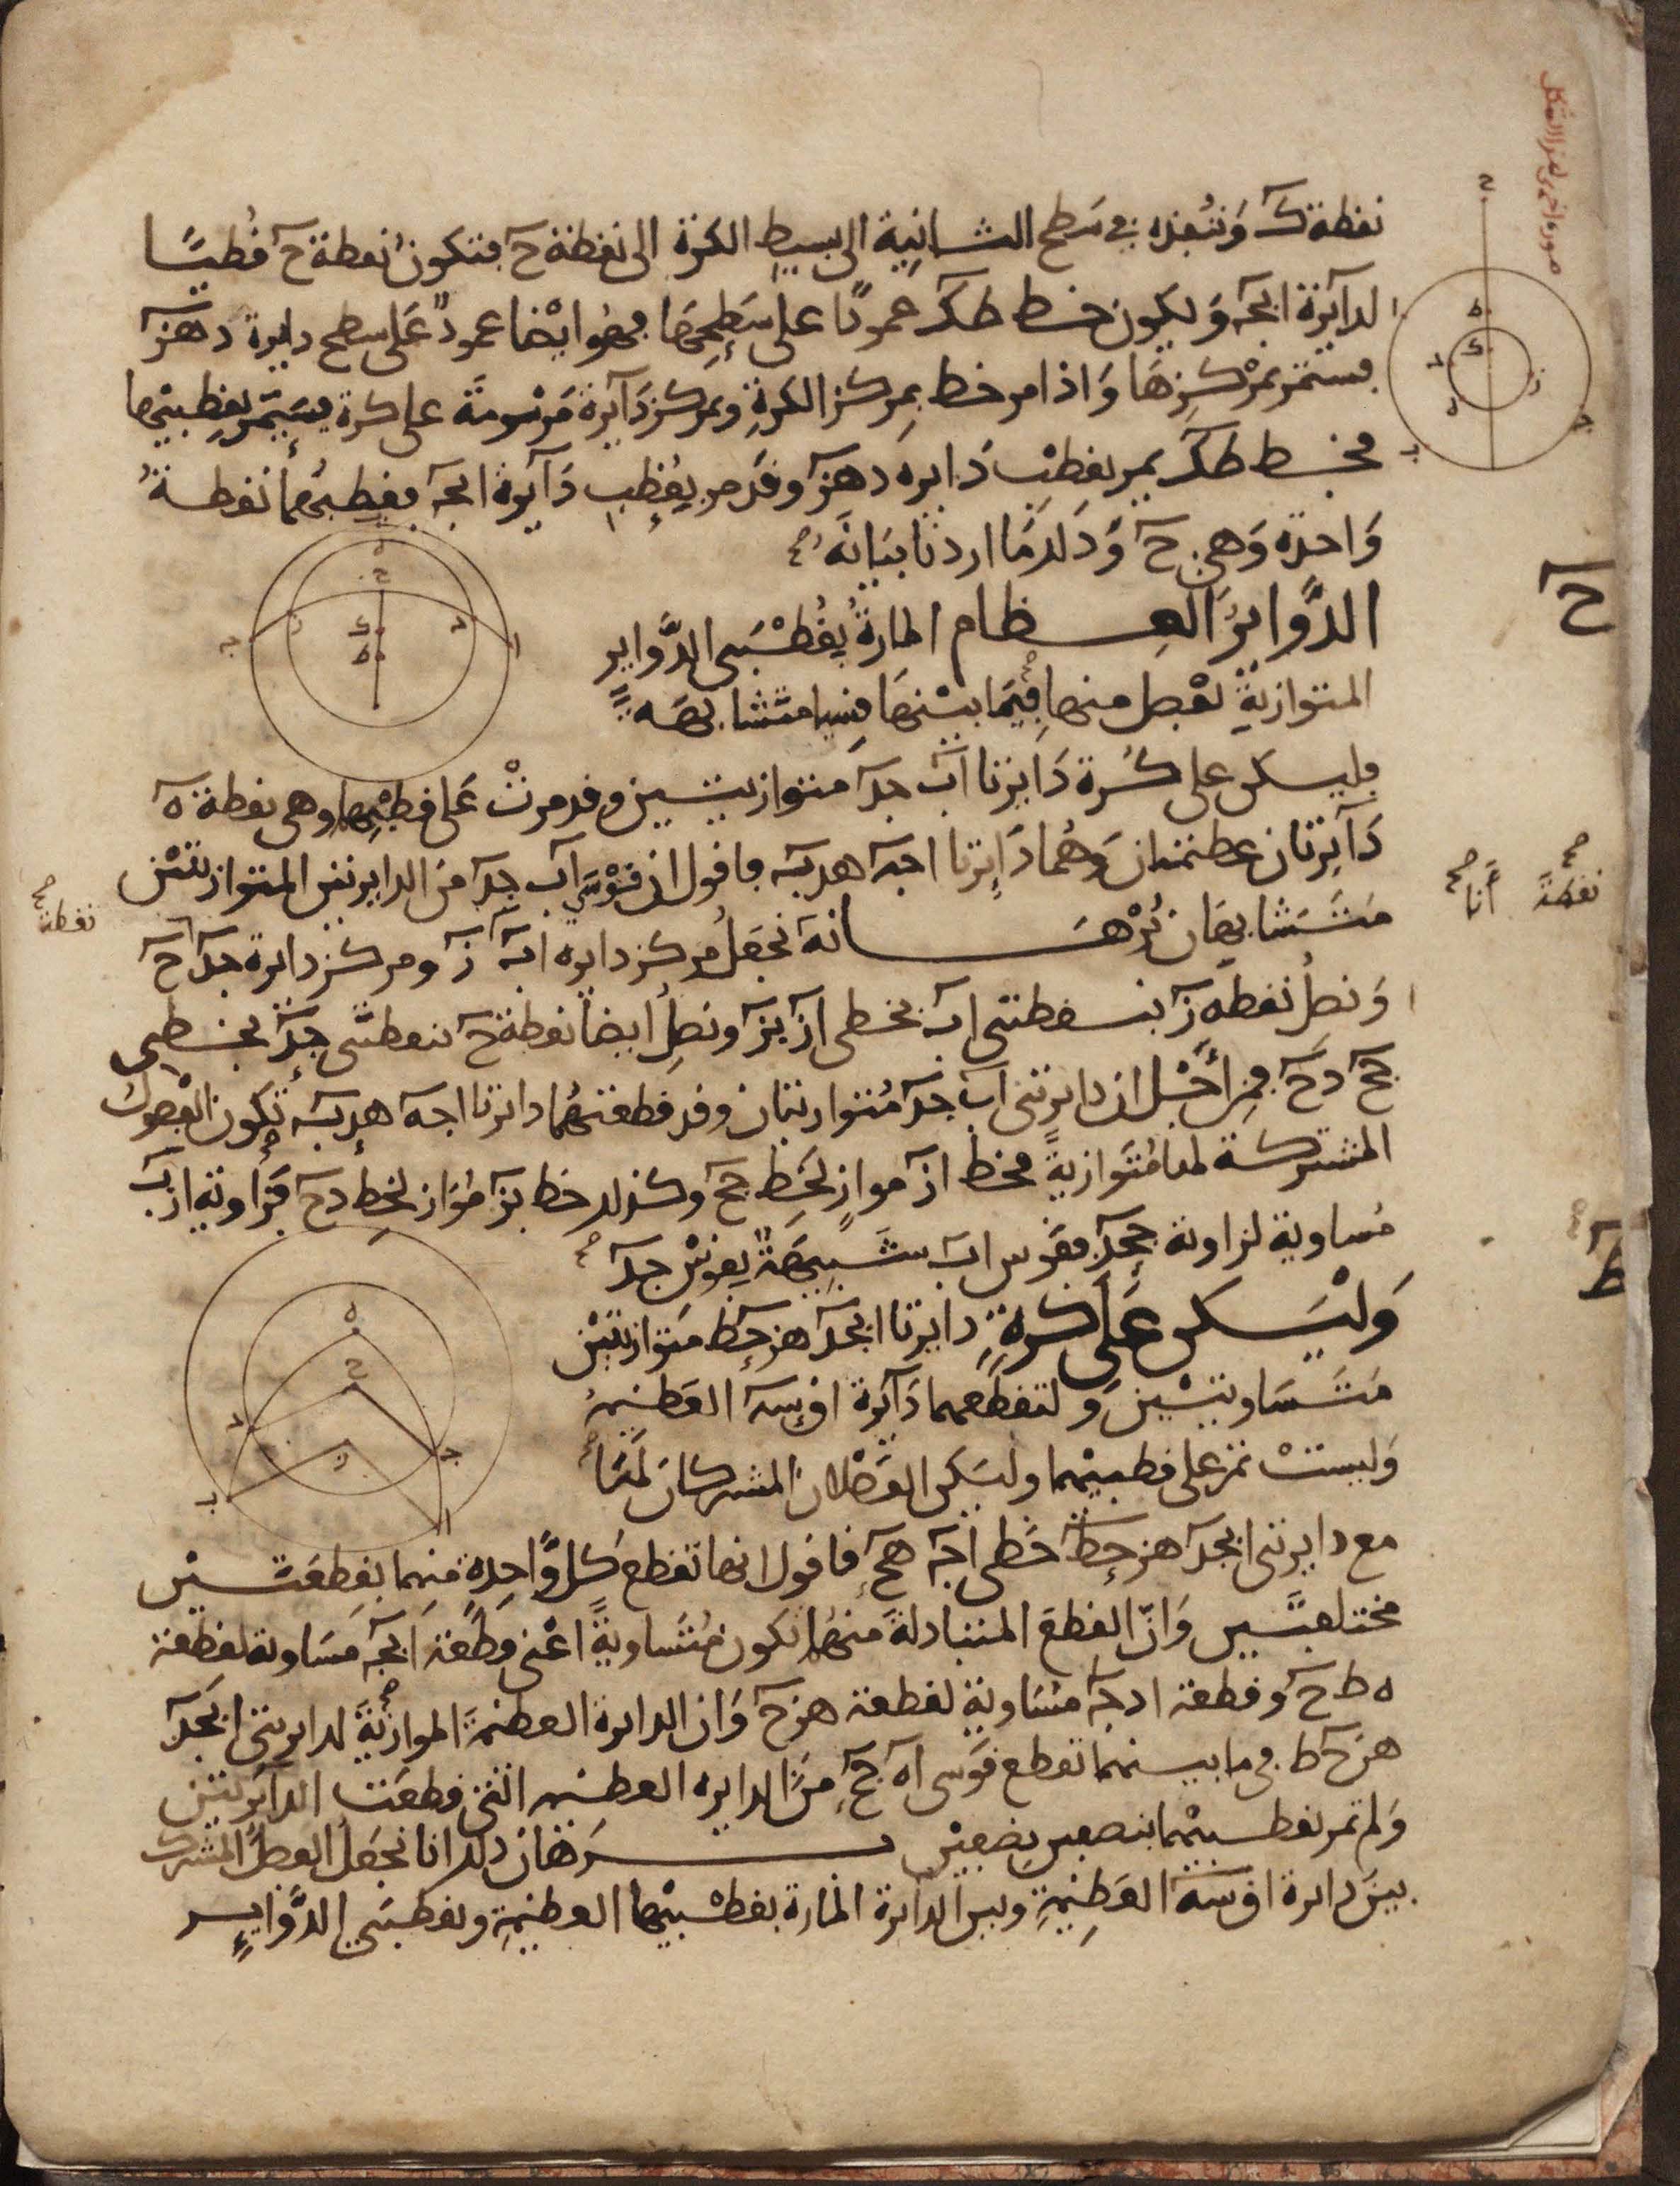 نقطة ك وننفذه في سطح الثانية الى بسيط الكرة الى نقطة ح فتكون نقطة ح قطبًا
لدآئرة ابجـ ويكون خط طكـ عمودًا على سطحها فهو ايضا عمودٌ على سطح دايرة دهز
فستمر بمركزها واذا مر خط بمركز الكرة وبمركز دَآئرة مرسومة على كرة فسيمر بقطبيها
فخط طكـ يمر بقطبي دايره دهز وقد مر بقطب دَآئرة ابجـ فقطبهما نقطة
واحدة وهي ح وذلك ما اردنا بيانه
ح
الدَّوايرُ العظام المارةُ بقُطْبَي الدَّواير
المتوازيةِ تفصل منها فيما بينها قسيا متشابهة
فليكن على كُرة دَايرتا اب جد متوازيتين وقد مرتْ على قطبيهما وهي نقطة ه
دَآئرتان عظيمتان وهُما دَايرتا اجه هدب فاقول ان قوْسَي اب جد من الدايرتين المتوازيتين
متشابهان بُرْهانه نجعل مركز دايره اب ز ومركز دايرة جد ح
ونصِلُ نقطه ز بنقطتي اب بخطي از بز ونصِلُ ايضا نقطة ح بنقطتي جد بخطي
جح دح فمِن أجْل ان دايرتي اب جد مُتوازيتان وقد قطعتهُما دايرتا اجه هدب تكون الفصول
المشتركة لها مُتوازيةً فخط از موازٍ لخَط جح وكذلك خط بز مُوَازٍ لخط دح فزاوية ازب
مُساوية لزاوية جحد فقوس اب شبيهةٌ بقوس جد
ط
وَليَكن عَلَى كرةٍ دايرتا ابجد هزحط متوازيتين
متسَاويتين ولتقطعهما دَآئرة اوسه العظيمة
وليستْ تمر على قطبيهما وليَكن الفصْلان المشتركان لهَا
مع دايرتي ابجد هزحط خطي اجـ هح فاقول انها تقطع كل وَّاحِدةٍ منهما بقطعتين
مختلفتين وَانّ القطع المتبادلة منهما تكون مُتساويةً اعْني قطْعَة ابجـ مسَاوية لقطعة
ه ط ح وقطعة ادجـ مسَاوية لقطعة هزح وَان الدايرة العظيمَةَ الموازيَةَ لدايرتي ابجد
هزحط في ما بينهما تقطع قوسي اه جح منَ الدايره العظيمه التي قطعت الدآيرتين
ولم تمر بقطبيهما بنصفين نصفين برهان ذلك انا نجعلُ الفصلَ المشترك
بين دايرة اوسه العظيمةِ وبين الدآئرة المارة بقطبيها العظيمةِ وبقطبي الدَّواير
نقطة
أنا
نقطة
صورة اخرى لهذا الشكل
ح
ا
ه
ك
د
ز
ه
ب
جـ
ه
ح
ك
ه
د
ز
ا
جـ
ه
ح
د
جـ
ز
ب
ا